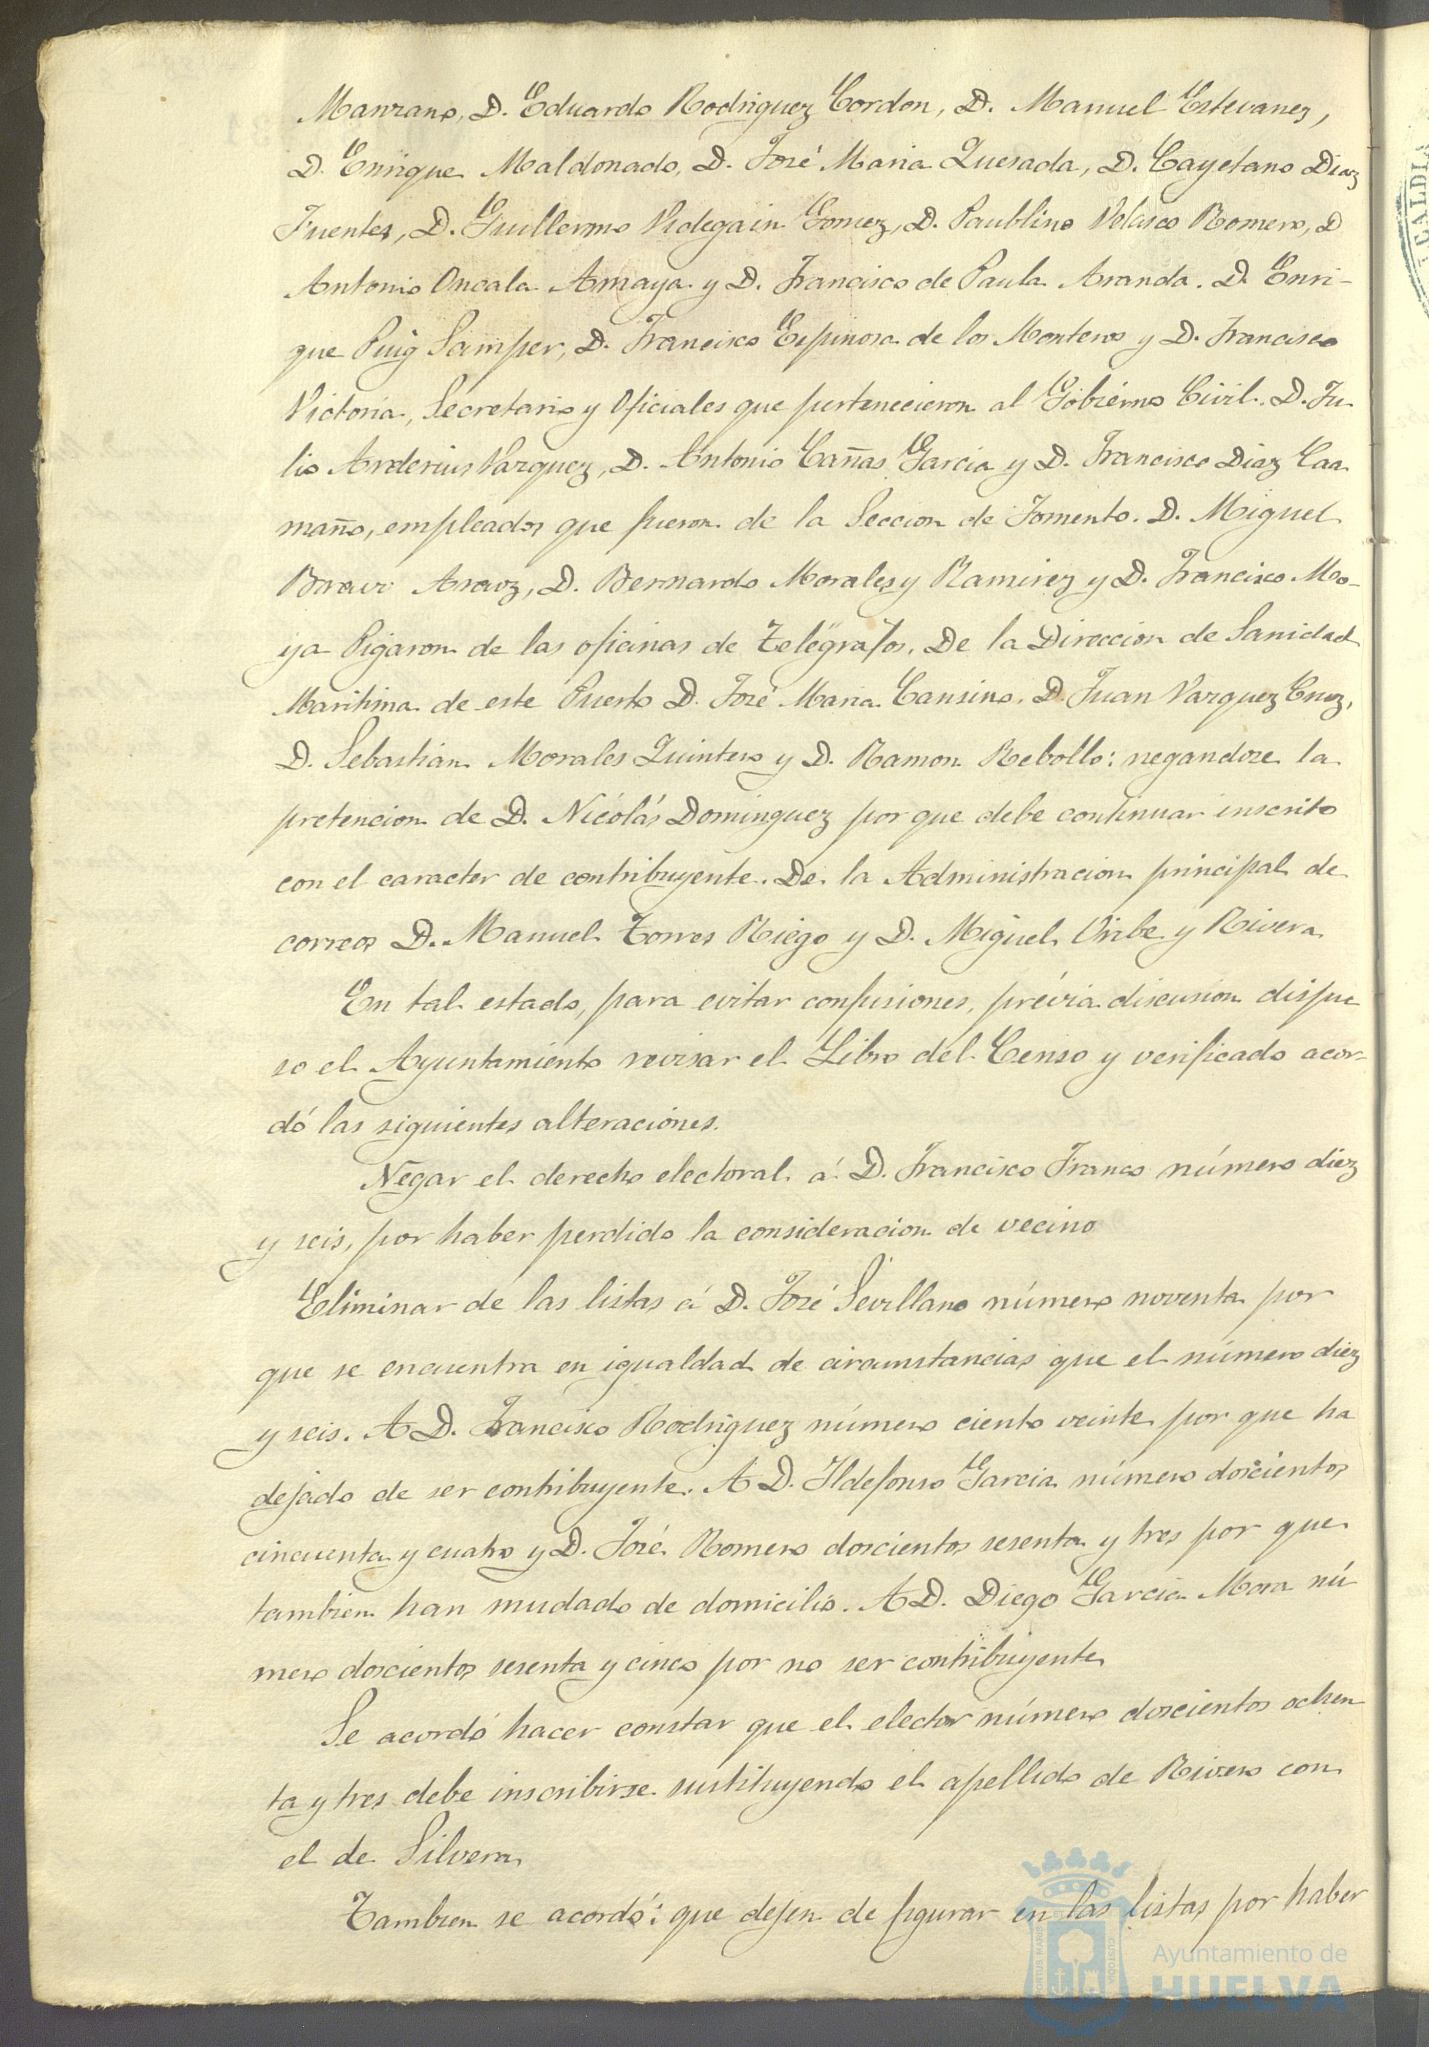 Manzano, D. Eduardo Rodriguez Cordon, D. Manuel Estevanez,
D. Enrique Maldonado, D. José Maria Quesada, D. Cayetano Diaz
Fuentes, D. Guillermo Videgain Gomez, D. Paublino Velasco Romero, D
Antonio Oncala Amaya y D. Francisco de Paula Aranda. D. Enri-
que Puig Samper, D. Francisco Espinosa de los Monteros y D. Francisco
Victoria, Secretario y Oficiales que pertenecieron al Gobierno Civil. D. Ju-
lio Arderius Vazquez, D. Antonio Cañas Garcia y D. Francisco Diaz Caa
maño, empleados que fueron de la Seccion de Fomento. D. Miguel
Bravo Araoz, D. Bernardo Morales y Ramirez y D. Francisco Mo-
ya Pigaron de las oficinas de Telégrafos. De la Direccion de Sanidad
Maritima de este Puerto D. José Maria Cansino. D Juan Vazquez Cruz,
D. Sebastián Morales Quintero y D. Ramon Rebollo: negandose la
pretencion de D. Nicolás Dominguez por que debe continuar inscrito
con el caracter de contribuyente. De la Administracion principal de
correos D. Manuel Torres Riego y D. Miguel Uribe y Rivera
En tal estado, para evitar confusiones, prévia discusion dispu
so el Ayuntamiento revisar el Libro del Censo y verificado acor-
dó las siguientes alteraciones.
Negar el derecho electoral á D. Francisco Franco número diez
y seis, por haber perdido la consideracion de vecino
Eliminar de las listas á D. José Sevillano número noventa por
que se encuentra en igualdad de circunstancias que el número diez
y seis. A D. Francisco Rodriguez número ciento veinte por que ha
dejado de ser contribuyente. A D. Ildefonso Garcia número doscientos
cincuenta y cuatro y D. José Romero doscientos sesenta y tres por que
tambien han mudado de domicilio. A D. Diego Garcia Mora nú
mero doscientos sesenta y cinco por no ser contribuyente
Se acordó hacer constar que el elector número doscientos ochen
ta y tres debe inscribirse sustituyendo el apellido de Rivero con
el de Silvera
Tambien se acordó: que dejen de figurar en las listas por haber
Ayuntamiento de
HUELVA